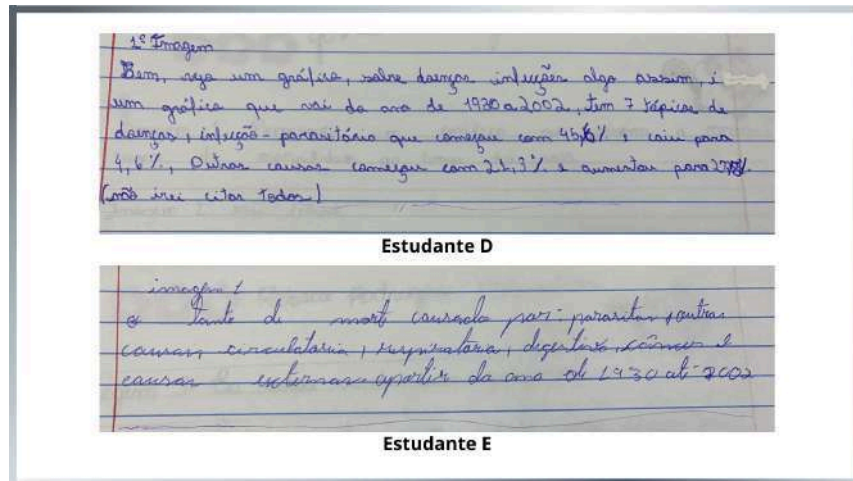 1º Imagem
Bem, vejo um gráfico, sobre doenças infecções algo assim, é
um gráfico que vai do ano de 1930 a 2002, tem 7 tópicos de
doenças, infecção-parasitária que começou com 45,6% e caiu para
4,6%, Outras causas começou com 21,3% e aumentou para
(não irei citar todos)
Estudante D
imagem 1
o tanto de mort causada por: parasitas, outras
causas, circulatoria, respiratoria, digestivo, câncer e
causas externas apartir do ano de 1930 até 2002
Estudante E